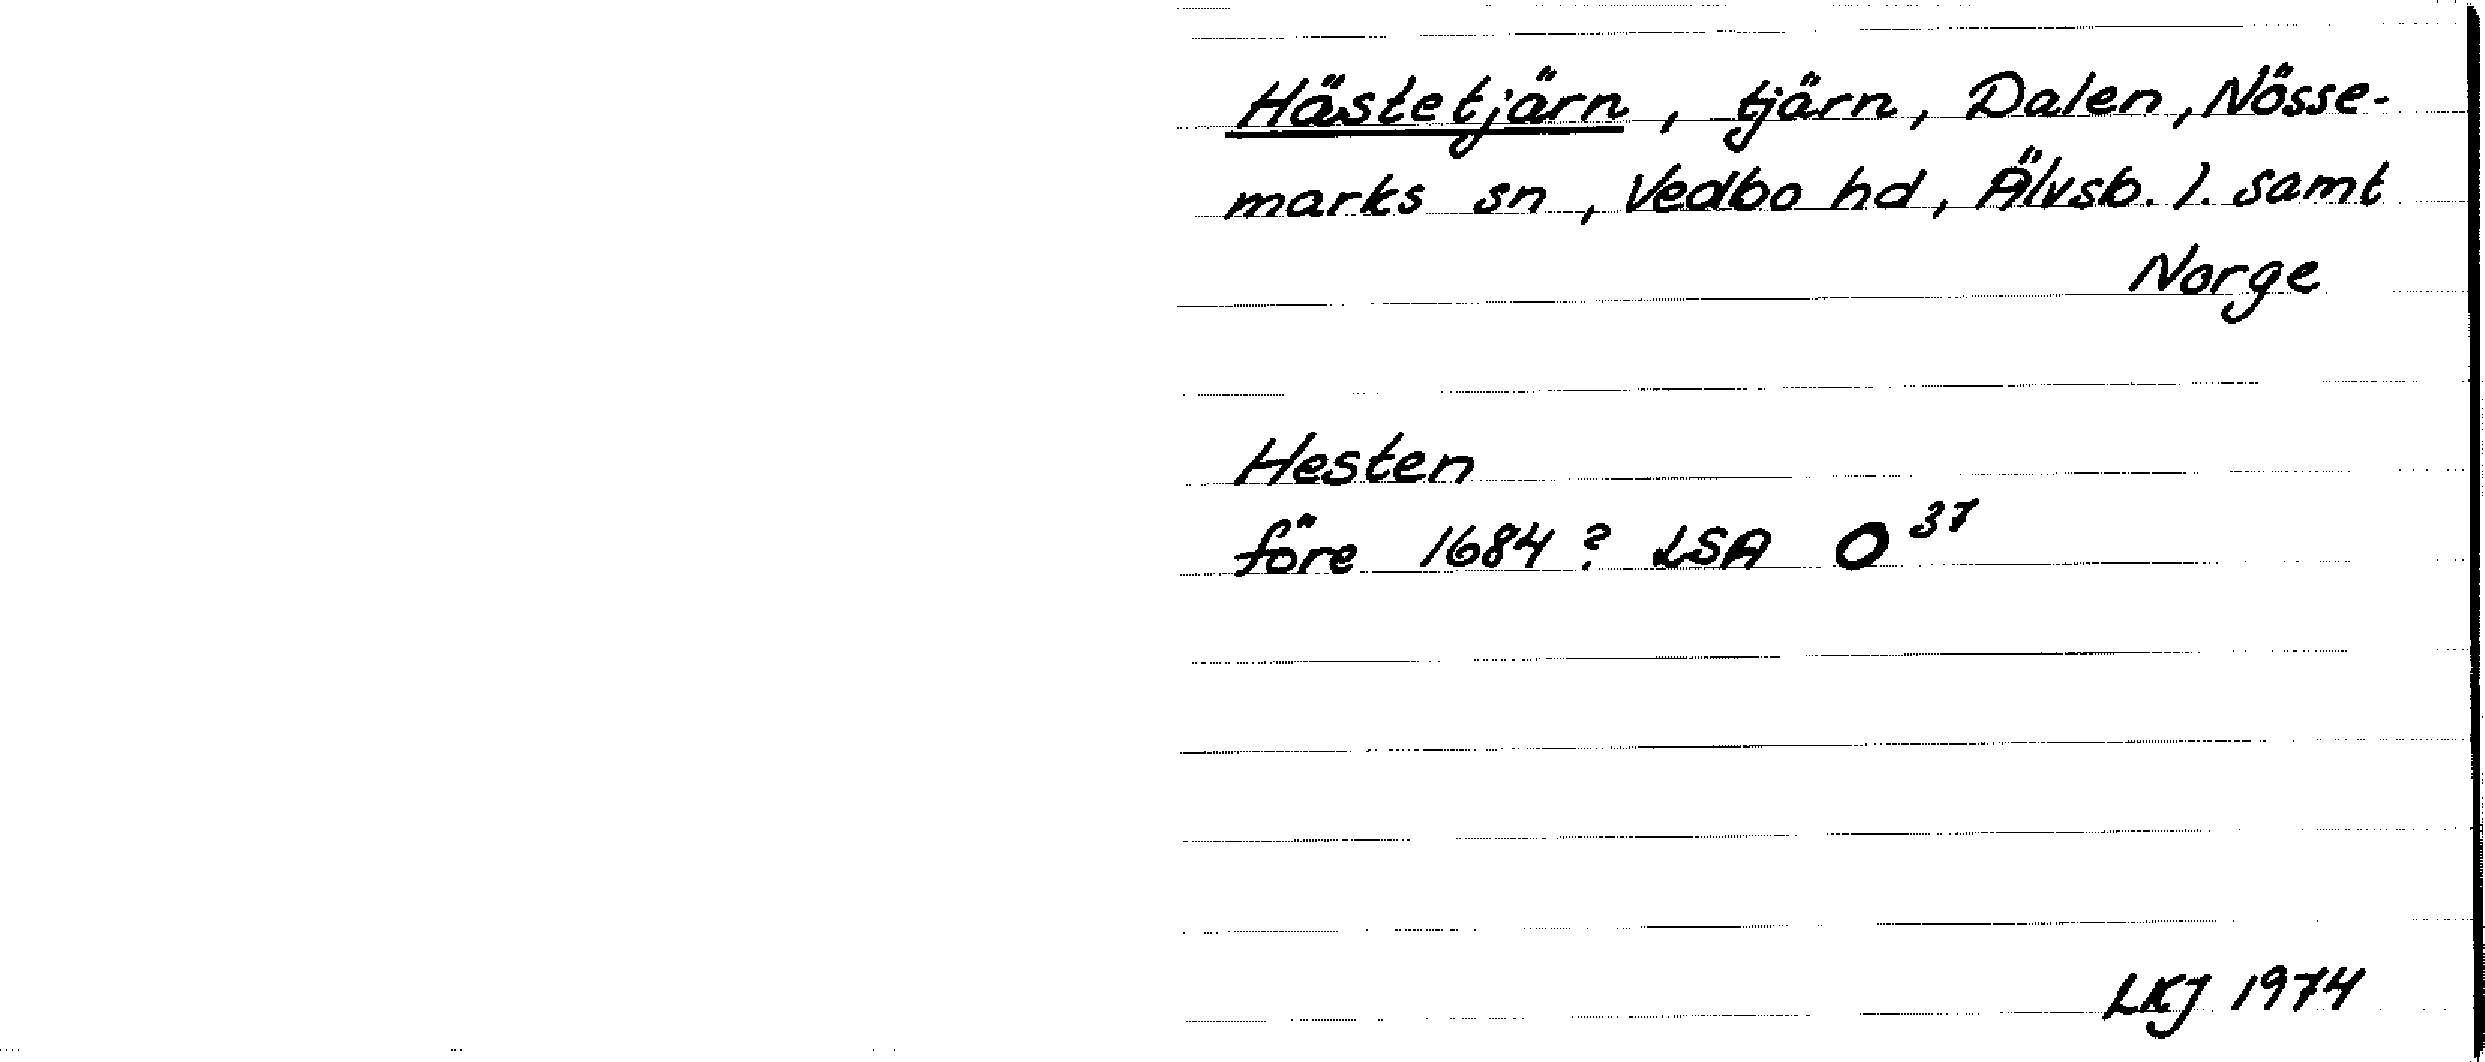 Hästetjärn, tjärn, Dalen, Nösse-
marks sn, Vedbo hd, Älvsb. l. samt
Norge
Hesten
före 1684? LSA O³⁷
LKJ 1974